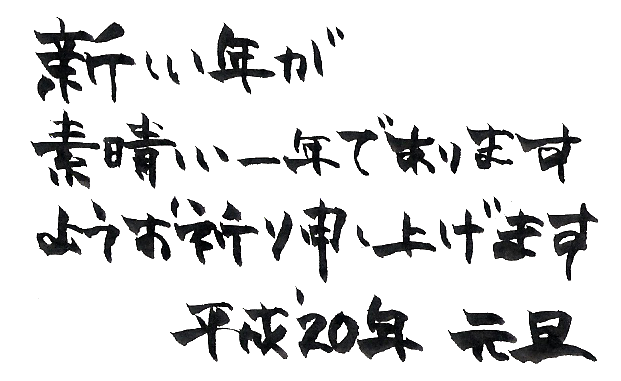 新しい年が
素晴しい一年であります
ようお祈り申し上げます
平成20年 元旦